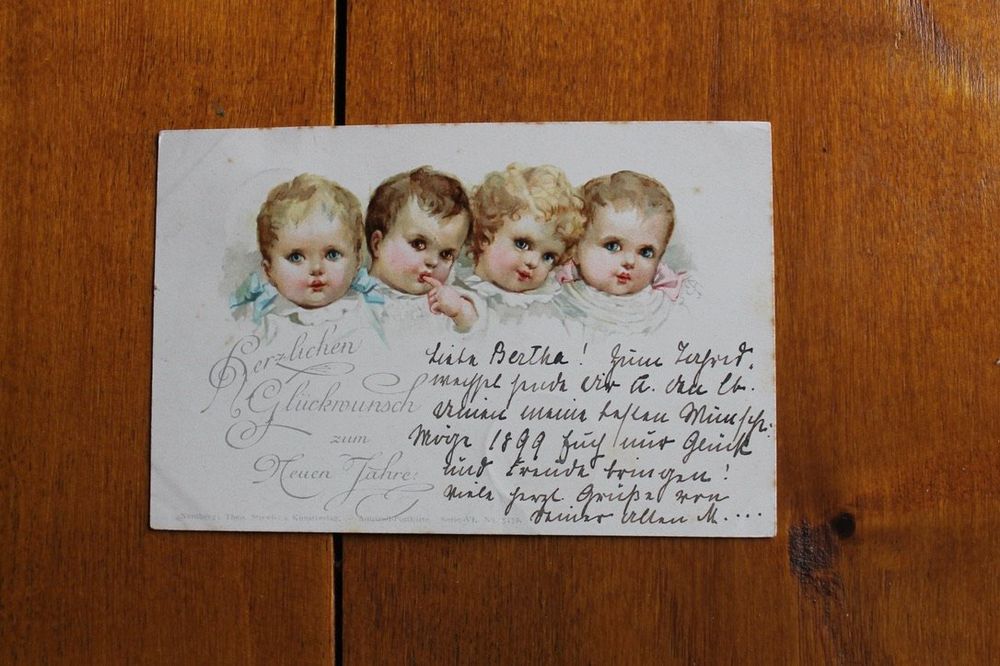 Herzlichen
Glückwunsch
zum
Neuen Jahre!
Liebe Bertha! Zum Jahres-
wechsel sende dir u. den lb.
deinen meine besten Wünsche.
Möge 1899 Euch nur Glück
und Freude bringen!
Viele herzl. Grüße von
Deiner alten M....
Nürnberg, Theo. Kunstverlag. Serie VI. No.